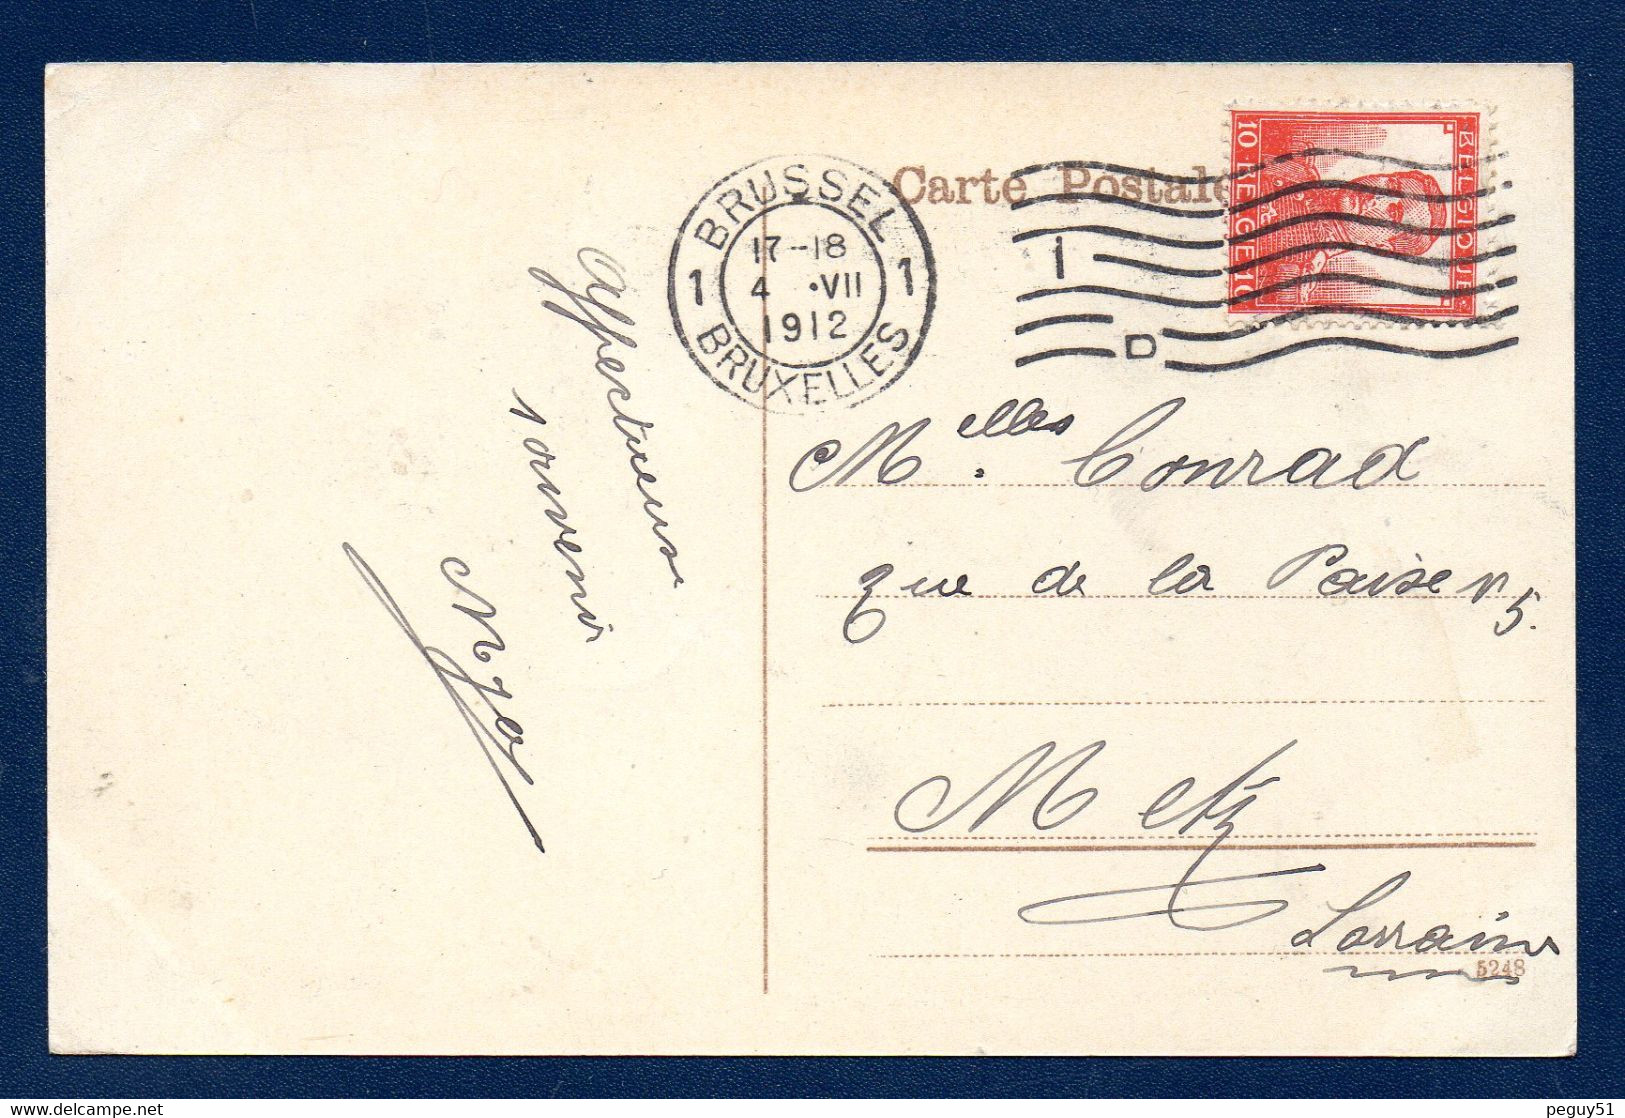 Carte Postale
BRUSSEL
1 1
17-18
4 •VII
1912
BRUXELLES
1
D
BELGIQUE
10 BELGIË 10
Affectueux
souvenir
Melles Conrad
Rue de la Paix n
5.
Metz
Lorraine
5248
delcampe.net
peguy51